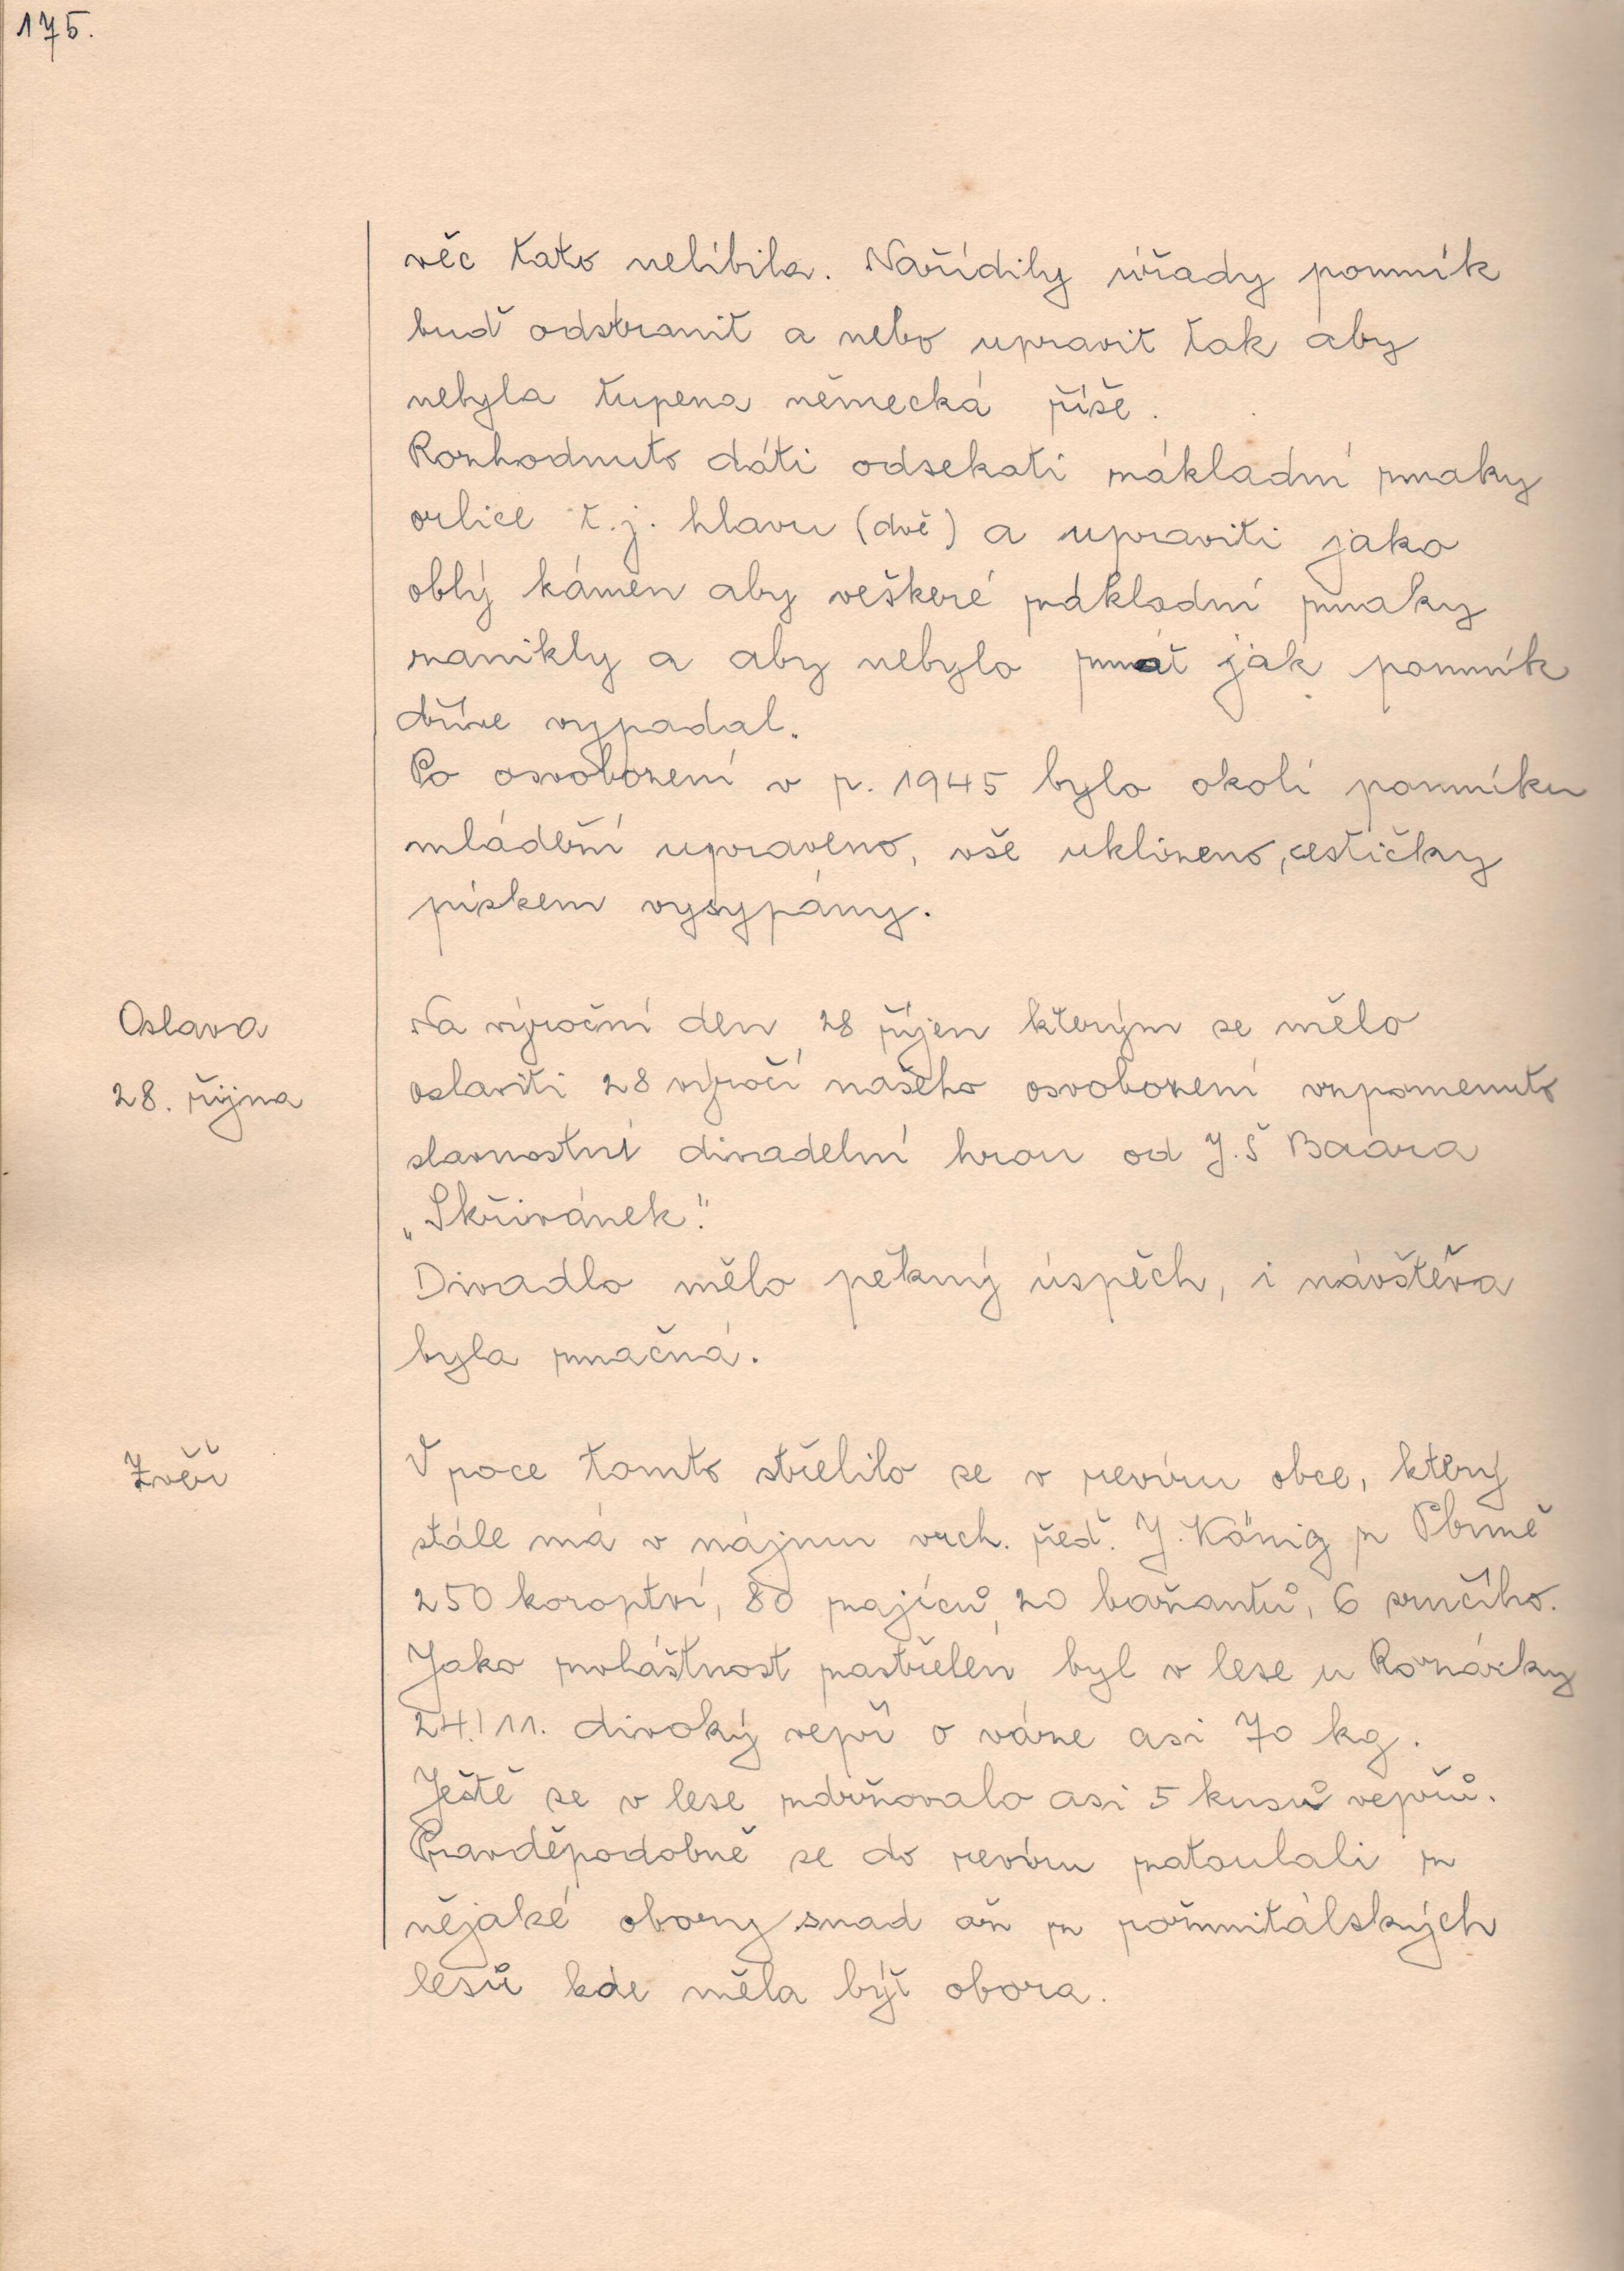 175.
věc tato nelíbila. Nařídily úřady pomník
buď odstranit a nebo upravit tak aby
nebyla tupena německá říše.
Rozhodnuto dáti odsekati základní znaky
orlice t.j. hlavu (dvě) a upraviti jako
oblý kámen aby veškeré základní znaky
zanikly a aby nebylo znát jak pomník
dříve vypadal.
Po osvobození v r. 1945 bylo okolí pomníku
mládeží upraveno, vše uklizeno, cestičky
pískem vysypány.
Oslava
28. října
Na výroční den 28 říjen kterým se mělo
oslaviti 28 výročí našeho osvobození vzpomenuto
slavnostní divadelní hrou od J. Š Baara
„Skřivánek".
Divadlo mělo pěkný úspěch, i návštěva
byla značná.
Zvěř
V roce tomto střelilo se v revíru obce, který
stále má v nájmu vrch. řed. J. König z Plzně
250 koroptví, 80 zajíců, 20 bažantů, 6 srnčího.
Jako zvláštnost zastřelen byl v lese u Rozárky
24./11. divoký vepř o váze asi 70 kg.
Ještě se v lese zdržovalo asi 5 kusů vepřů.
Pravděpodobně se do revíru zatoulali z
nějaké obory snad až z rožmitálských
lesů kde měla být obora.